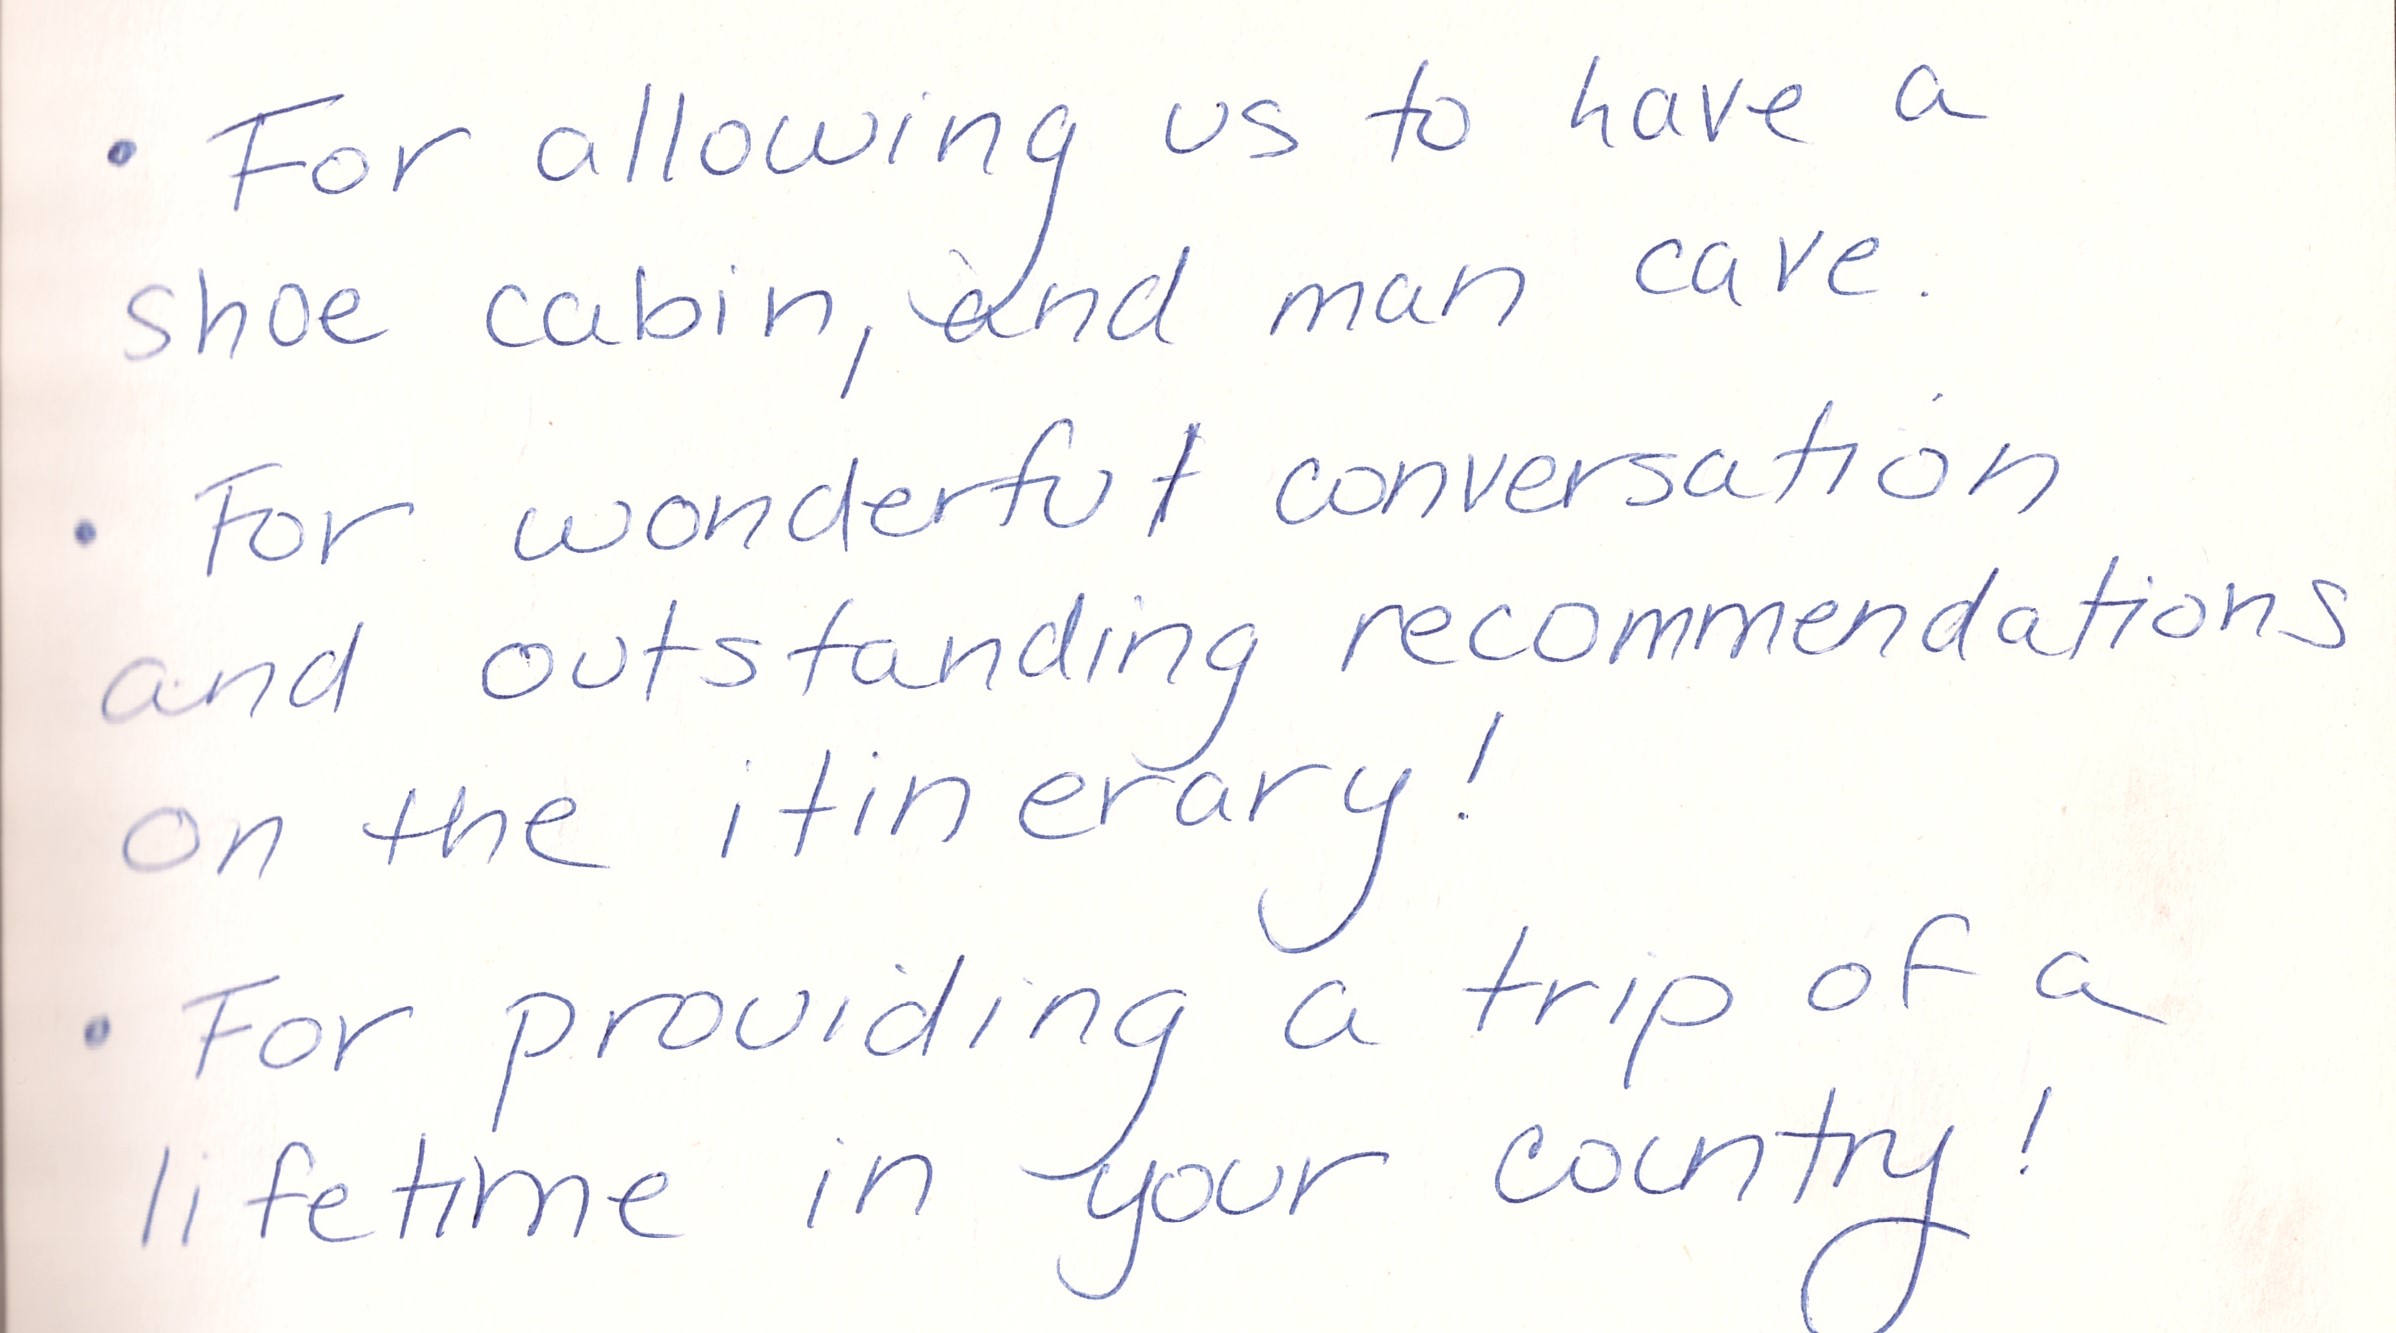 • For allowing us to have a
shoe cabin, and man cave.
• For wonderful conversation
and outstanding recommendations
on the itinerary!
• For providing a trip of a
lifetime in your country!